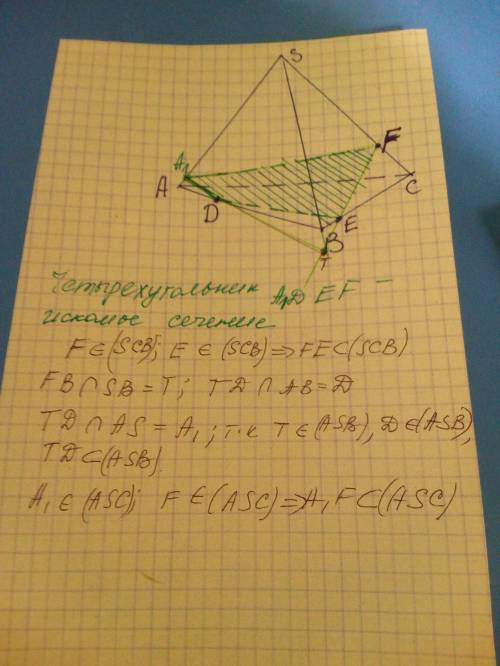 S
A₁
A
F
C
D
E
B
T
Четырехугольник A₁DEF –
искомое сечение
F ∈ (SCB); E ∈ (SCB) ⇒ FE ⊂ (SCB)
FB ∩ SB = T; TD ∩ AB = D
TD ∩ AS = A₁; т.к T ∈ (ASB), D ∈ (ASB),
TD ⊂ (ASB).
A₁ ∈ (ASC); F ∈ (ASC) ⇒ A₁F ⊂ (ASC)